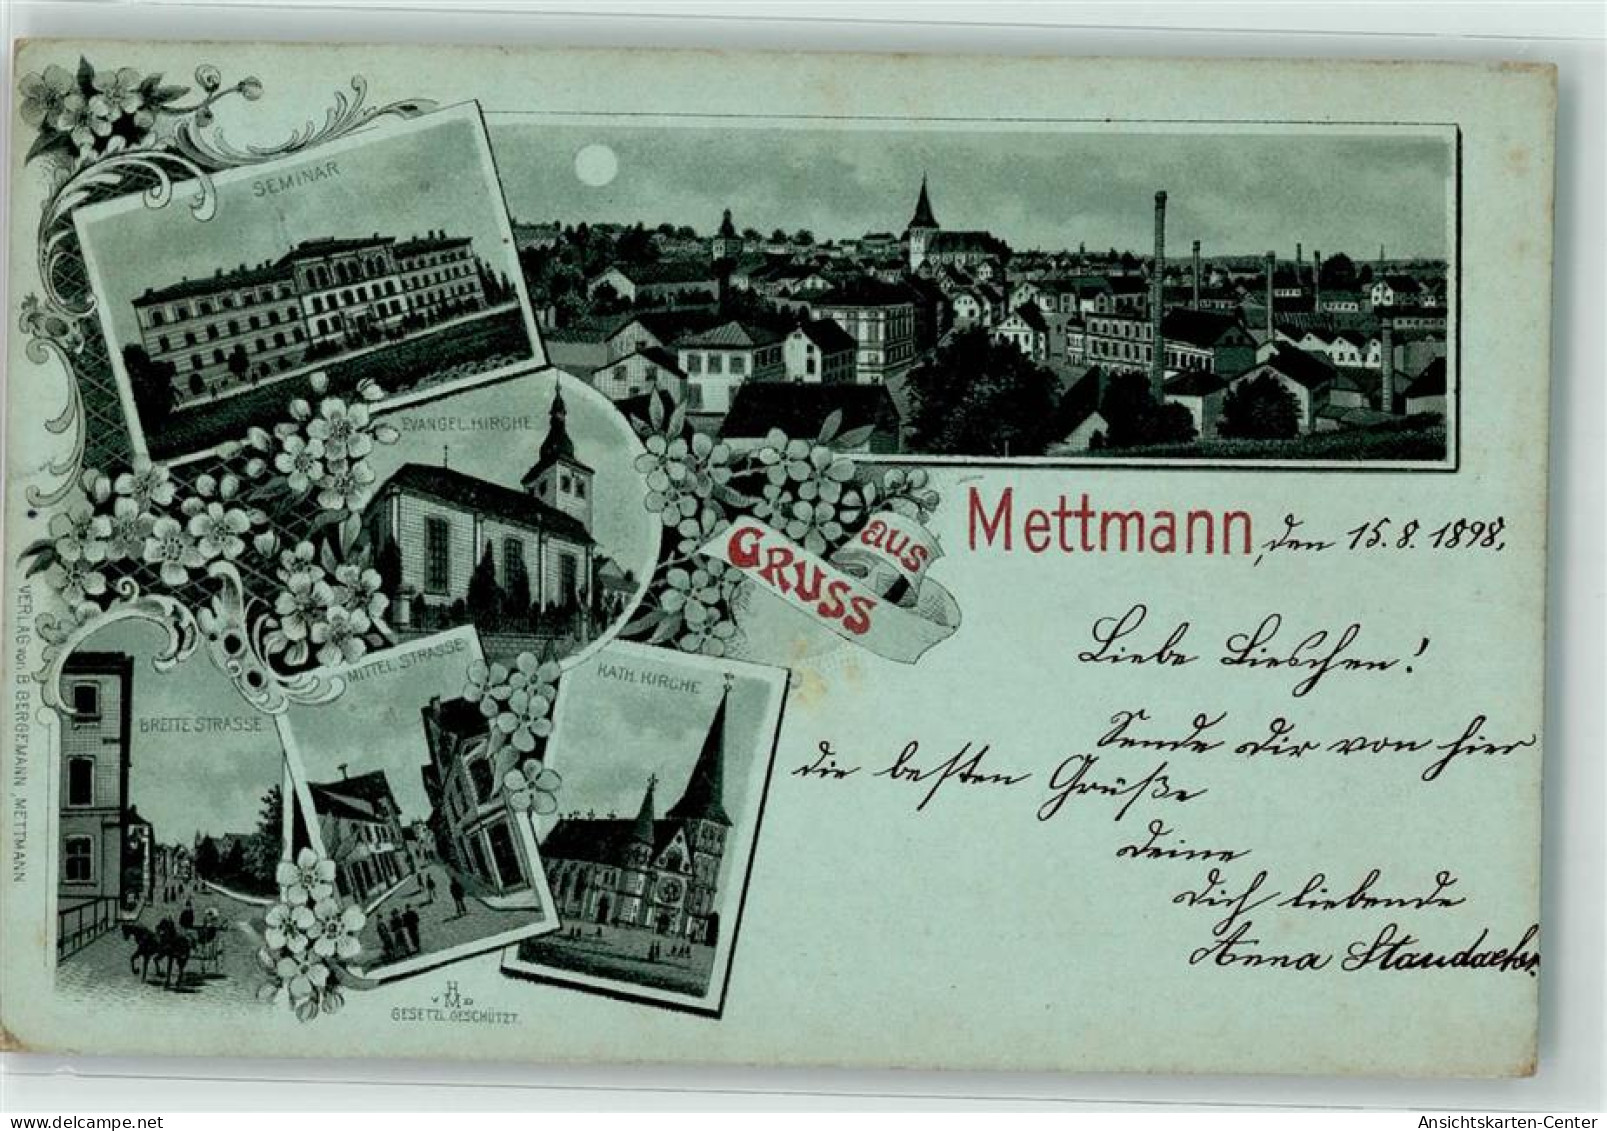 SEMINAR
EVANGEL. KIRCHE
MITTEL STRASSE
KATH. KIRCHE
BREITE STRASSE
GRUSS
aus
Mettmann, den 15.8.1898.
Liebe Lieschen!
Sende Dir von hier
die besten Grüße
Deine
Dich liebende
Anna Standacher
VERLAG von B. BERGEMANN, METTMANN
H
V M D
GESETZL. GESCHÜTZT.
Ansichtskarten-Center